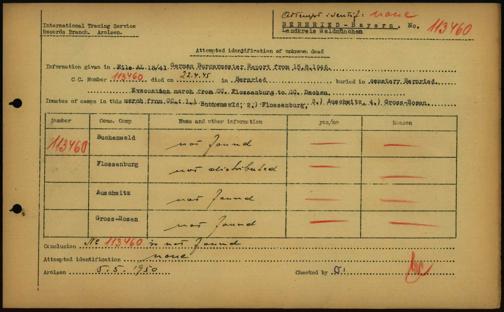 Attempt identif: none
International Tracing Service
Records Branch. Arolsen.
BERNRIED-Bayern. No. 113460
Landkreis Waldmünchen
Attempted identification of unknown dead
Information given in File AL 18/41 German Burgermeister Report from 15.8.1946.
C.C. Number 113460 died on 22.4.45 in Bernried buried in cemetery Bernried.
Evacuation march from CC. Flossenburg to CC. Dachau.
Inmates of camps in this march from CC.: 1.) Buchenwald; 2.) Flossenburg, 3.) Auschwitz, 4.) Gross-Rosen
number Conc. Camp Name and other information yes/no results
113460 Buchenwald not found — —
Flossenburg not distributed — —
Auschwitz not found — —
Gross-Rosen not found — —
Conclusion No 113460 is not found
Attempted identification none
Arolsen 5.5.1950 Checked by